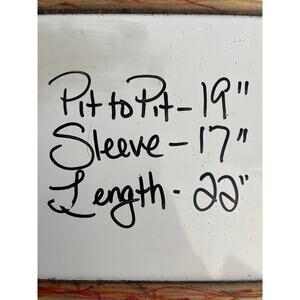 Pit to Pit - 19"
Sleeve - 17"
Length - 22"